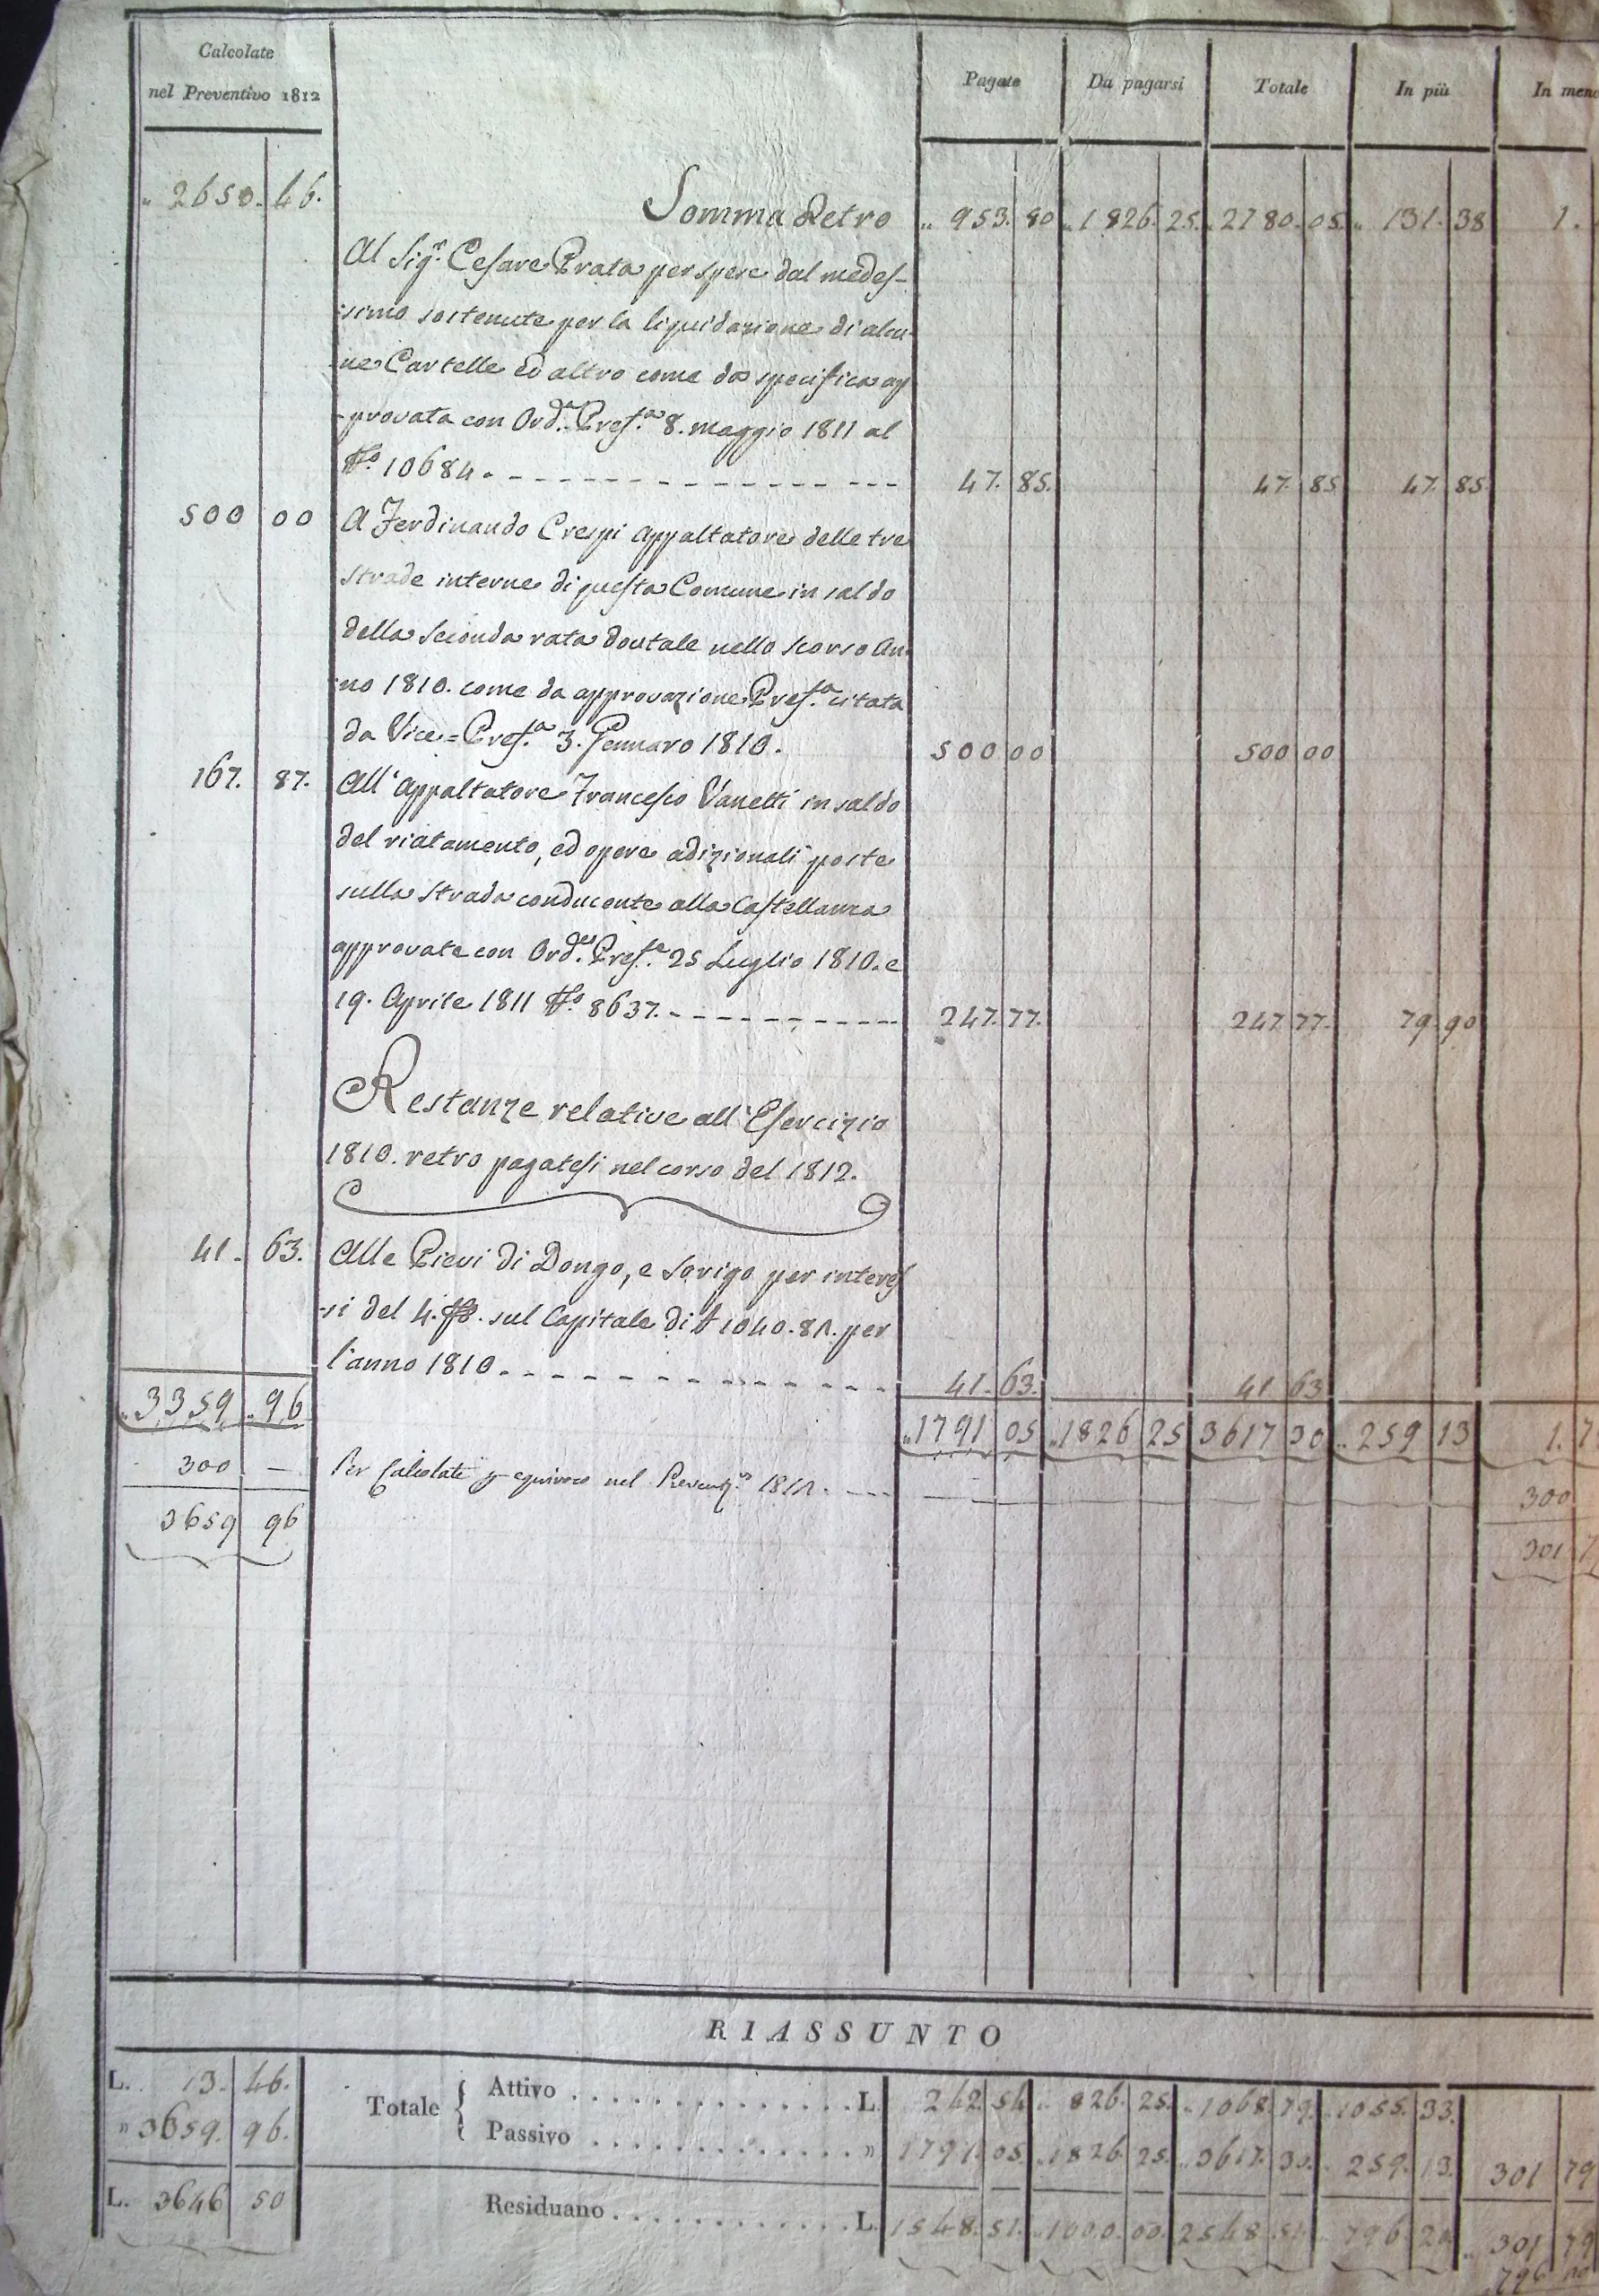 Calcolate
nel Preventivo 1812
Pagate Da pagarsi Totale In più In meno
„ 2650. 46. Somma Retro „ 953. 80 „ 1826. 25. „ 2780. 05. „ 131. 38 1.
Al Sig.r Cesare Prata per spese dal medes-
simo sostenute per la liquidazione di alcu-
ne Cartelle ed altro come da specifica ap
-provata con Ord.a Pref.a 8. maggio 1811 al
N.o 10684. 47. 85. 47. 85 47. 85
500 00 A Ferdinando Crespi Appaltatore delle tre
strade interne di questa Comune in saldo
della seconda rata doutale nello scorso An-
no 1810. come da approvazione Pref.a citata
da Vice=Pref.a 3. Gennaro 1810. 500 00 500 00
167. 87. All'Appaltatore Francesco Vanetti in saldo
del riatamento, ed opere adizionali poste
sulla strada conducente alla Castellanza
approvate con Ord.es Pref.e 25 Luglio 1810. e
19. Aprile 1811 N.o 8637. 247. 77. 247 77. 79. 90
Restanze relative all'Esercizio
1810. retro pagatesi nel corso del 1812.
41. 63. Alle Pievi di Dongo, e Sorigo per interes
-si del 4. sul Capitale di 1040. 82. per
l'anno 1810. 41. 63. 41 63
„ 3359 „ 96 „ 1791 05 „ 1826 25 3617 30 „ 259 13 1. 7
300 — Per Calcolate equivoco nel Prevent.o 1812. 300
3659 96 301 7
RIASSUNTO
L. 13. 46. Totale { Attivo . . . . . L. 242 54 „ 826. 25. „ 1068. 79. „ 1055. 33.
„ 3659. 96. Passivo . . . . . „ 1791. 05. „ 1826. 25. „ 3617. 30. „ 259. 13. 301 79
L. 3646 50 Residuano . . . . . L. 1548. 51. „ 1000. 00. 2548. 51. 796. 20 „ 301 79
796